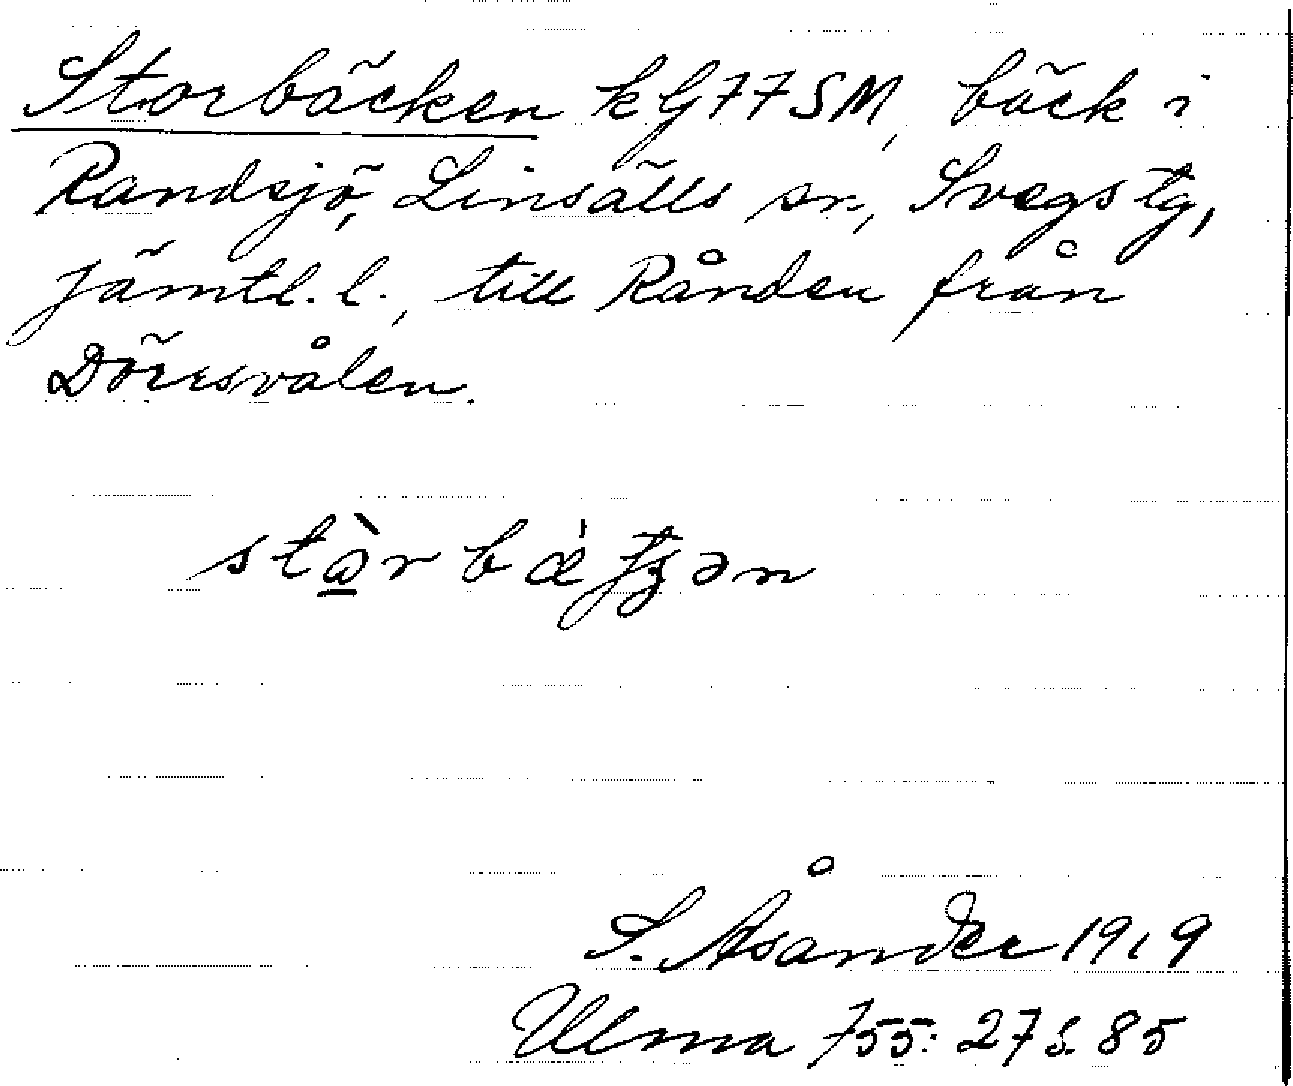 Storbäcken kG77SM, bäck i
Randsjö, Linsälls sn, Svegs tg,
Jämtl. l., till Rånden från
Dörrsvålen.
S. Åsander 1919
Ulma 755: 27 s. 85